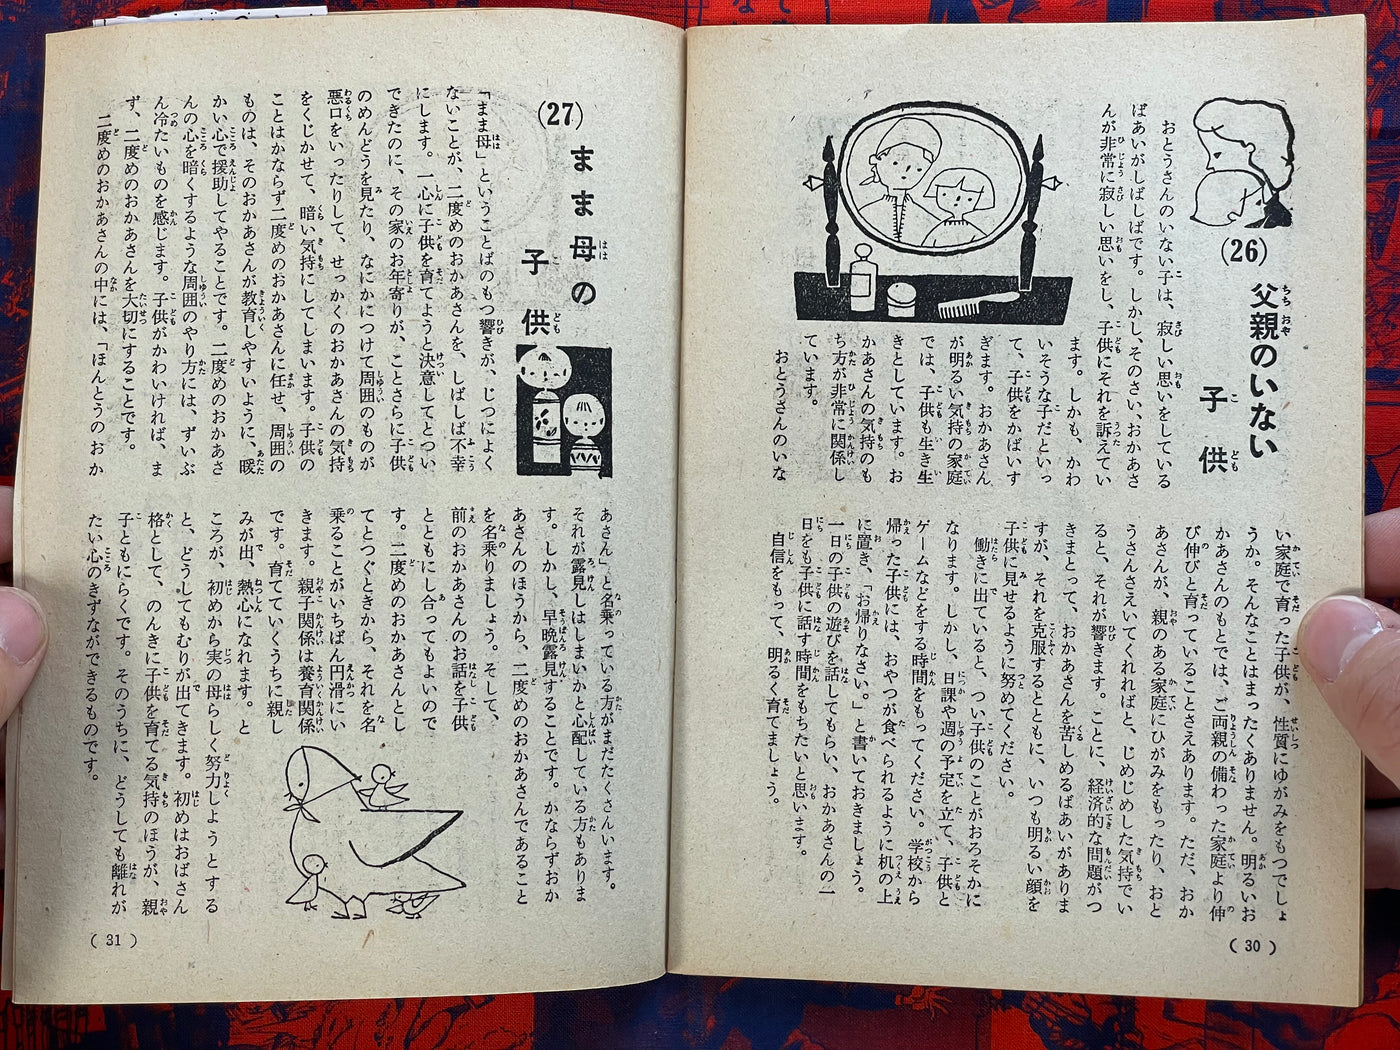 (26)
父親のいない
子供
おとうさんのいない子は、寂しい思いをしている
ばあいがしばしばです。しかし、そのさい、おかあさ
んが非常に寂しい思いをし、子供にそれを訴えてい
ます。しかも、かわ
いそうな子だといっ
て、子供をかばいす
ぎます。おかあさん
が明るい気持の家庭
では、子供も生き生
きとしています。お
かあさんの気持のも
ち方が非常に関係し
ています。
おとうさんのいな
い家庭で育った子供が、性質にゆがみをもつでしょ
うか。そんなことはまったくありません。明るいお
かあさんのもとでは、ご両親の備わった家庭より伸
び伸びと育っていることさえあります。ただ、おか
あさんが、親のある家庭にひがみをもったり、おと
うさんさえいてくれればと、じめじめした気持でい
ると、それが響きます。ことに、経済的な問題がつ
きまとって、おかあさんを苦しめるばあいがありま
すが、それを克服するとともに、いつも明るい顔を
子供に見せるように努めてください。
働きに出ていると、つい子供のことがおろそかに
なります。しかし、日課や週の予定を立て、子供と
ゲームなどをする時間をもってください。学校から
帰った子供には、おやつが食べられるように机の上
に置き、「お帰りなさい。」と書いておきましょう。
一日の子供の遊びを話してもらい、おかあさんの一
日をも子供に話す時間をもちたいと思います。
自信をもって、明るく育てましょう。
(30)
(27)
まま母の
子供
「まま母」ということばのもつ響きが、じつによく
ないことが、二度めのおかあさんを、しばしば不幸
にします。一心に子供を育てようと決意してとつい
できたのに、その家のお年寄りが、ことさらに子供
のめんどうを見たり、なにかにつけて周囲のものが
悪口をいったりして、せっかくのおかあさんの気持
をくじかせて、暗い気持にしてしまいます。子供の
ことはかならず二度めのおかあさんに任せ、周囲の
ものは、そのおかあさんが教育しやすいように、暖
かい心で援助してやることです。二度めのおかあさ
んの心を暗くするような周囲のやり方には、ずいぶ
ん冷たいものを感じます。子供がかわいければ、ま
ず、二度めのおかあさんを大切にすることです。
二度めのおかあさんの中には、「ほんとうのおか
あさん」と名乗っている方がまだたくさんいます。
それが露見しはしまいかと心配している方もありま
す。しかし、早晩露見することです。かならずおか
あさんのほうから、二度めのおかあさんであること
を名乗りましょう。そして、
前のおかあさんのお話を子供
とともにし合ってもよいので
す。二度めのおかあさんとし
てとつぐときから、それを名
乗ることがいちばん円滑にい
きます。親子関係は養育関係
です。育てていくうちに親し
みが出、熱心になれます。と
ころが、初めから実の母らしく努力しようとする
と、どうしてもむりが出てきます。初めはおばさん
格として、のんきに子供を育てる気持のほうが、親
子ともにらくです。そのうちに、どうしても離れが
たい心のきずながができるものです。
(31)